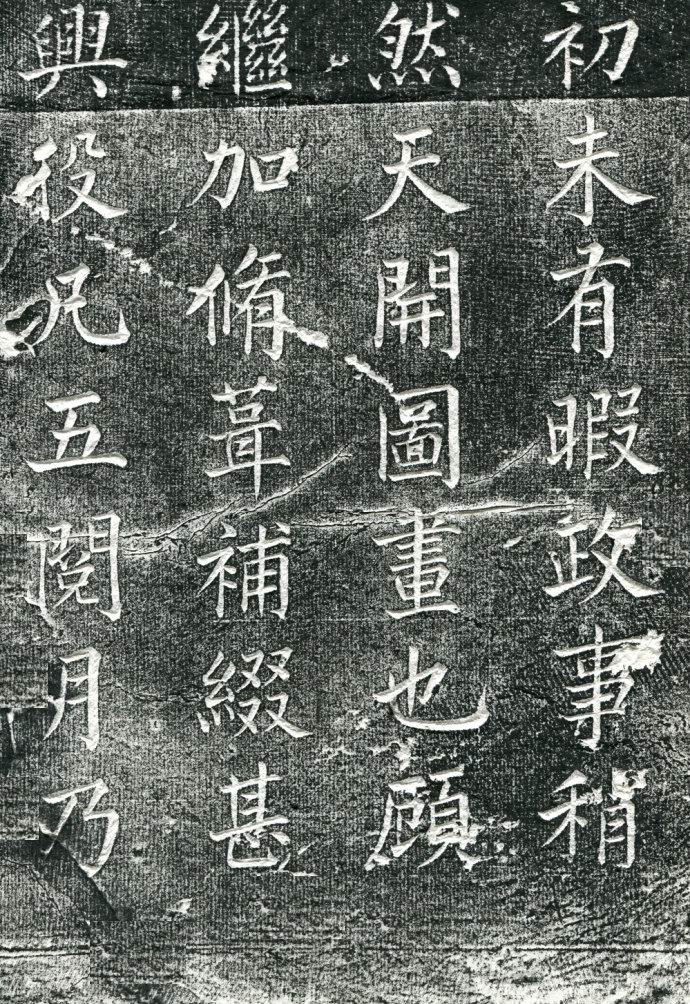 初未有暇政事稍
然天開圖畫也顧
繼加脩葺補綴甚
興役凡五閱月乃